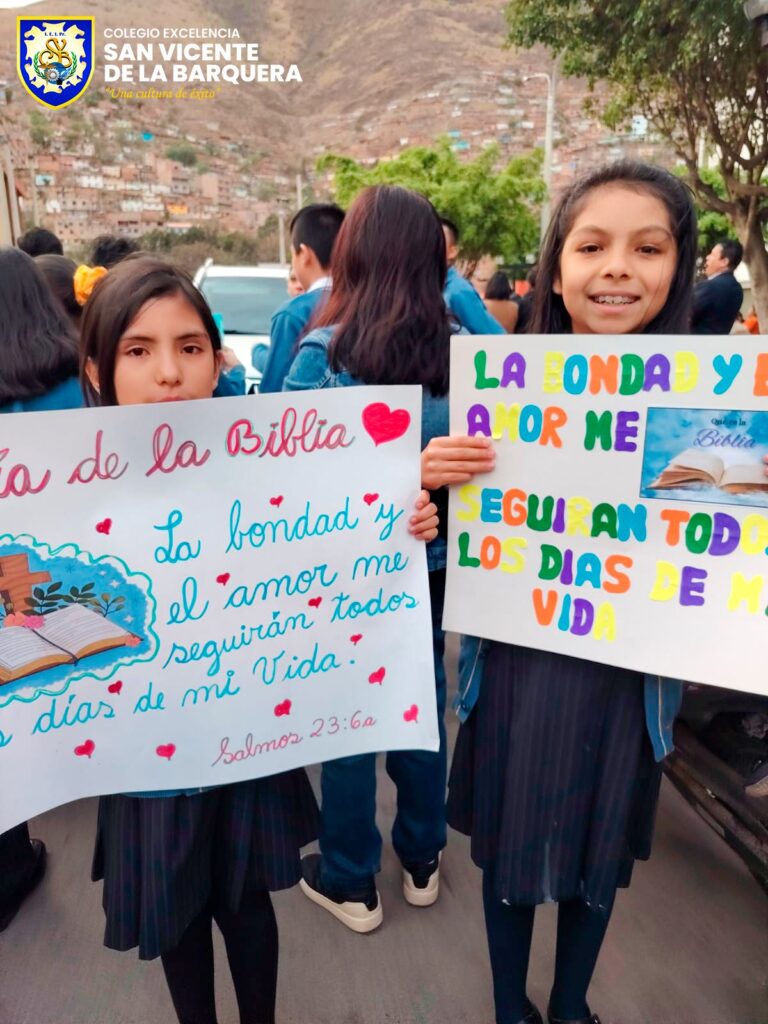 COLEGIO EXCELENCIA
SAN VICENTE
DE LA BARQUERA
"Una cultura de éxito"
de la Biblia
La bondad y
el amor me
seguirán todos
días de mi Vida.
Salmos 23:6a
LA BONDAD Y
AMOR ME
Qué es la
Biblia
SEGUIRAN TODO
LOS DIAS DE M
VIDA